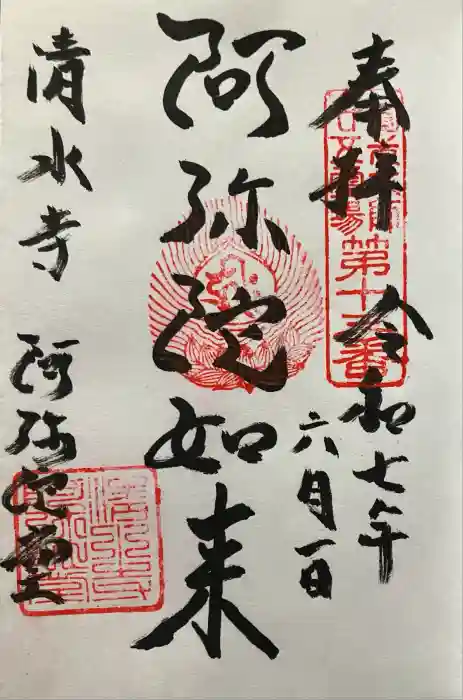 奉拝 令和七年
六月一日
阿弥陀如来
清水寺 阿弥陀堂
第十三番